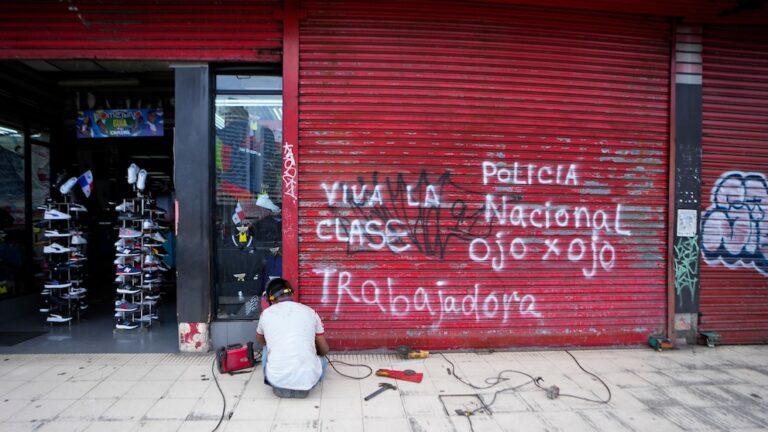 VIVA LA
CLASE
Trabajadora
POLICIA
Nacional
ojo x ojo